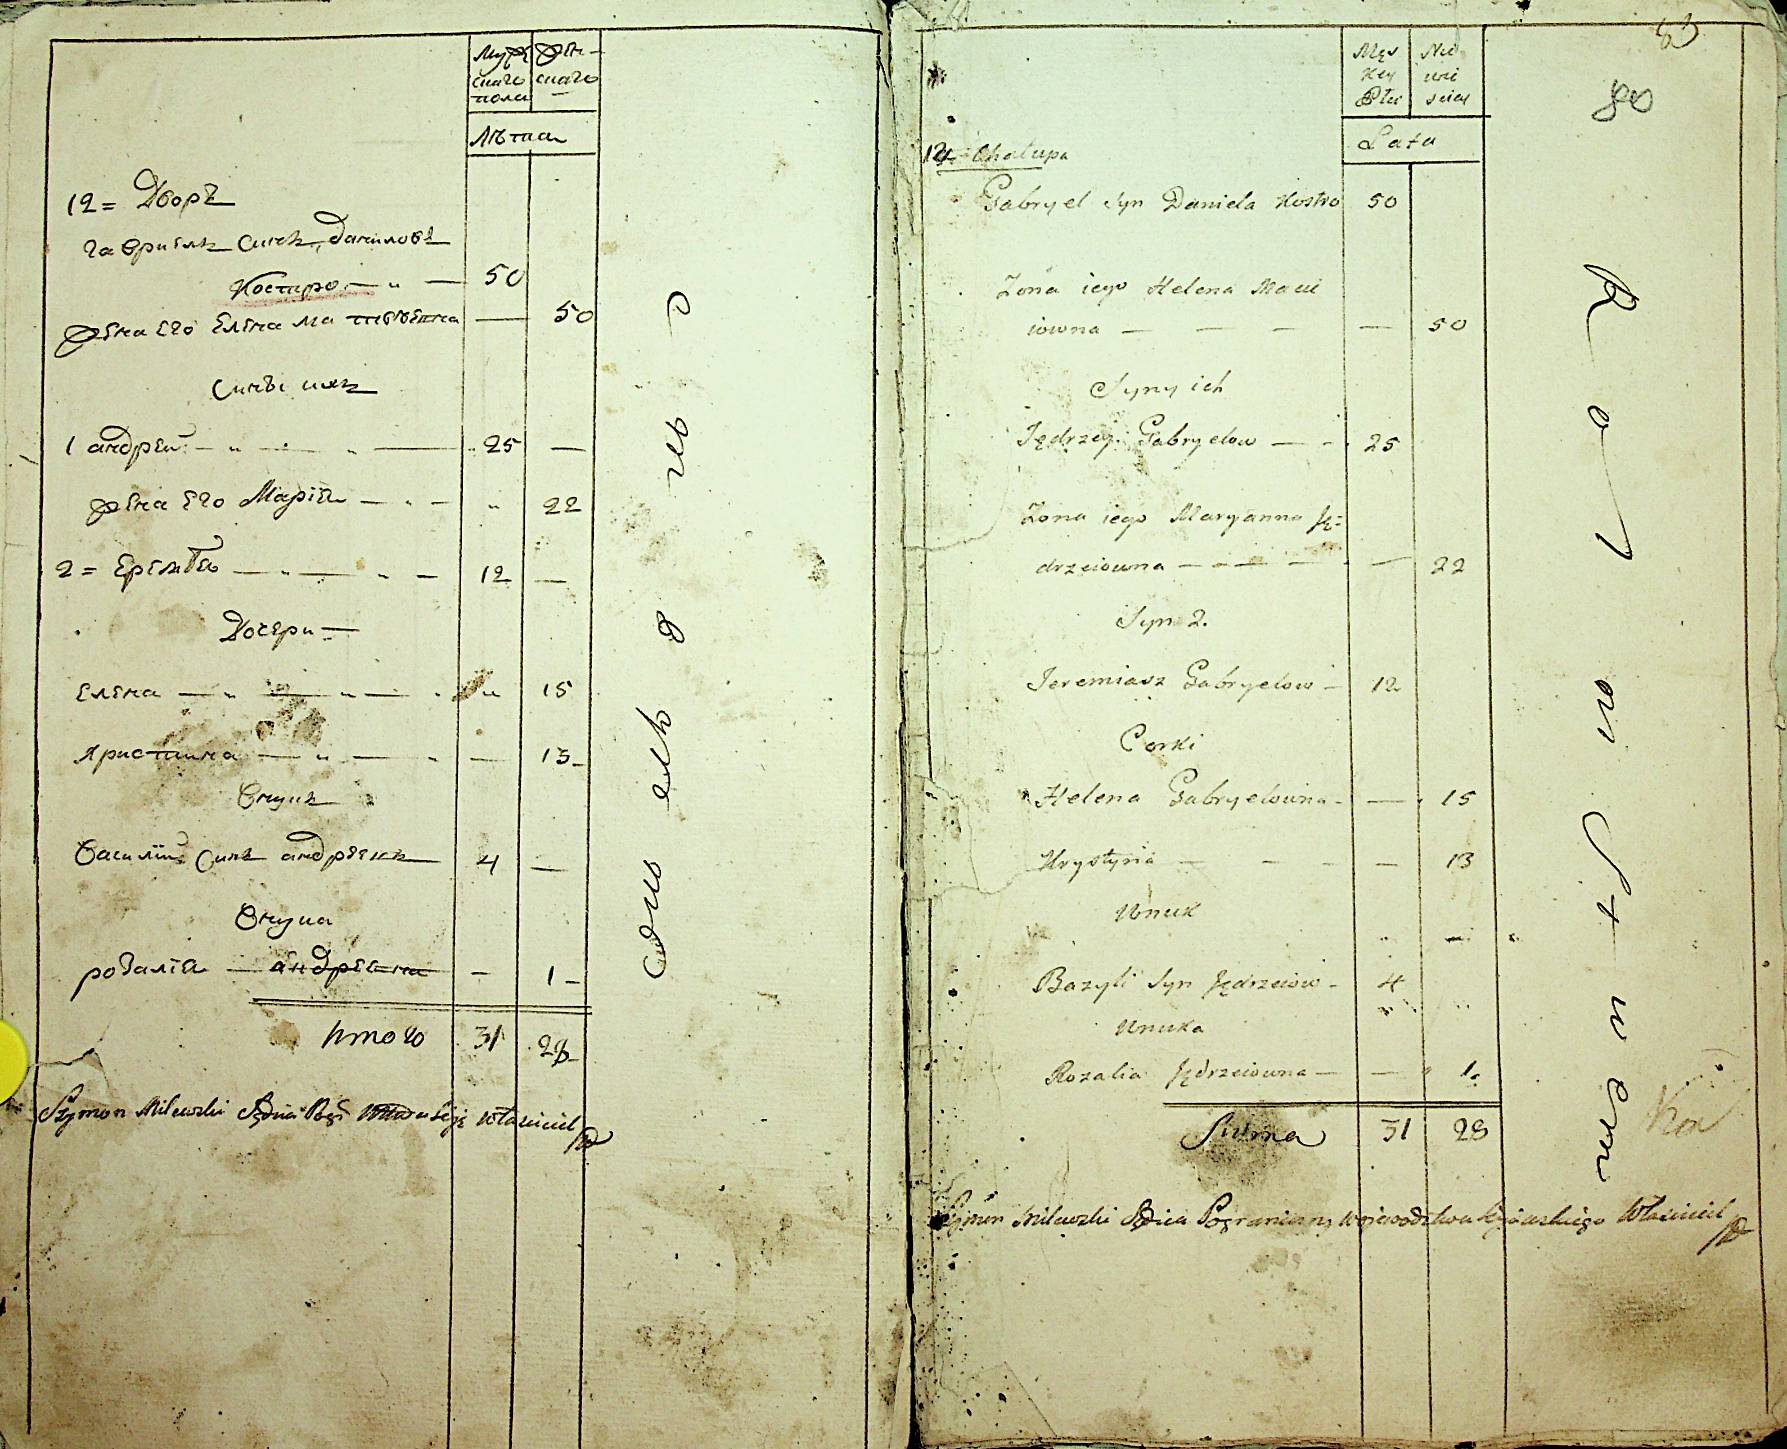 Мужескаго пола
Женскаго
Лѣта
12 = Дворъ
Гавриилъ Синъ Даниловъ
Костро — " — 50
Жена его Елена Матвѣевна — 50
Сини ихъ
1 андрей — " — " — 25 —
Жена его Марія — " — " 22
2 = Еремѣй — " — " — 12 —
Дочери —
Елена — " — " — " " 15
Христина — " — " — 13
Внукъ
Василій Синъ андреевъ 4 —
Внука
розалія — андреевна — 1
Итого 31 28
Szymon Milewski Sędzia Właściciel
Męs
key
Płci
Nie
wie
sciey
Lata
83
80
12 Chałupa
Gabryel Syn Daniela Kostro 50
Zona iego Helena Maci
iowna — — — — 50
Syny ich
Jędrzej Gabryelow — - 25
Zona iego Maryanna Ję=
drzeiowna — - — — — 22
Syn 2.
Jeremiasz Gabryelow — 12
Corki
Helena Gabryelowna - — 15
Krystyna — - - — 13
Wnuk
Bazyli Syn Jędrzeiow - 4
Wnuka
Rozalia Jędrzeiowna — — 1.
Summa 31 28
Szymon Milewski Sędzia Pograniczny Wojewodztwa Kijowskiego Właściciel